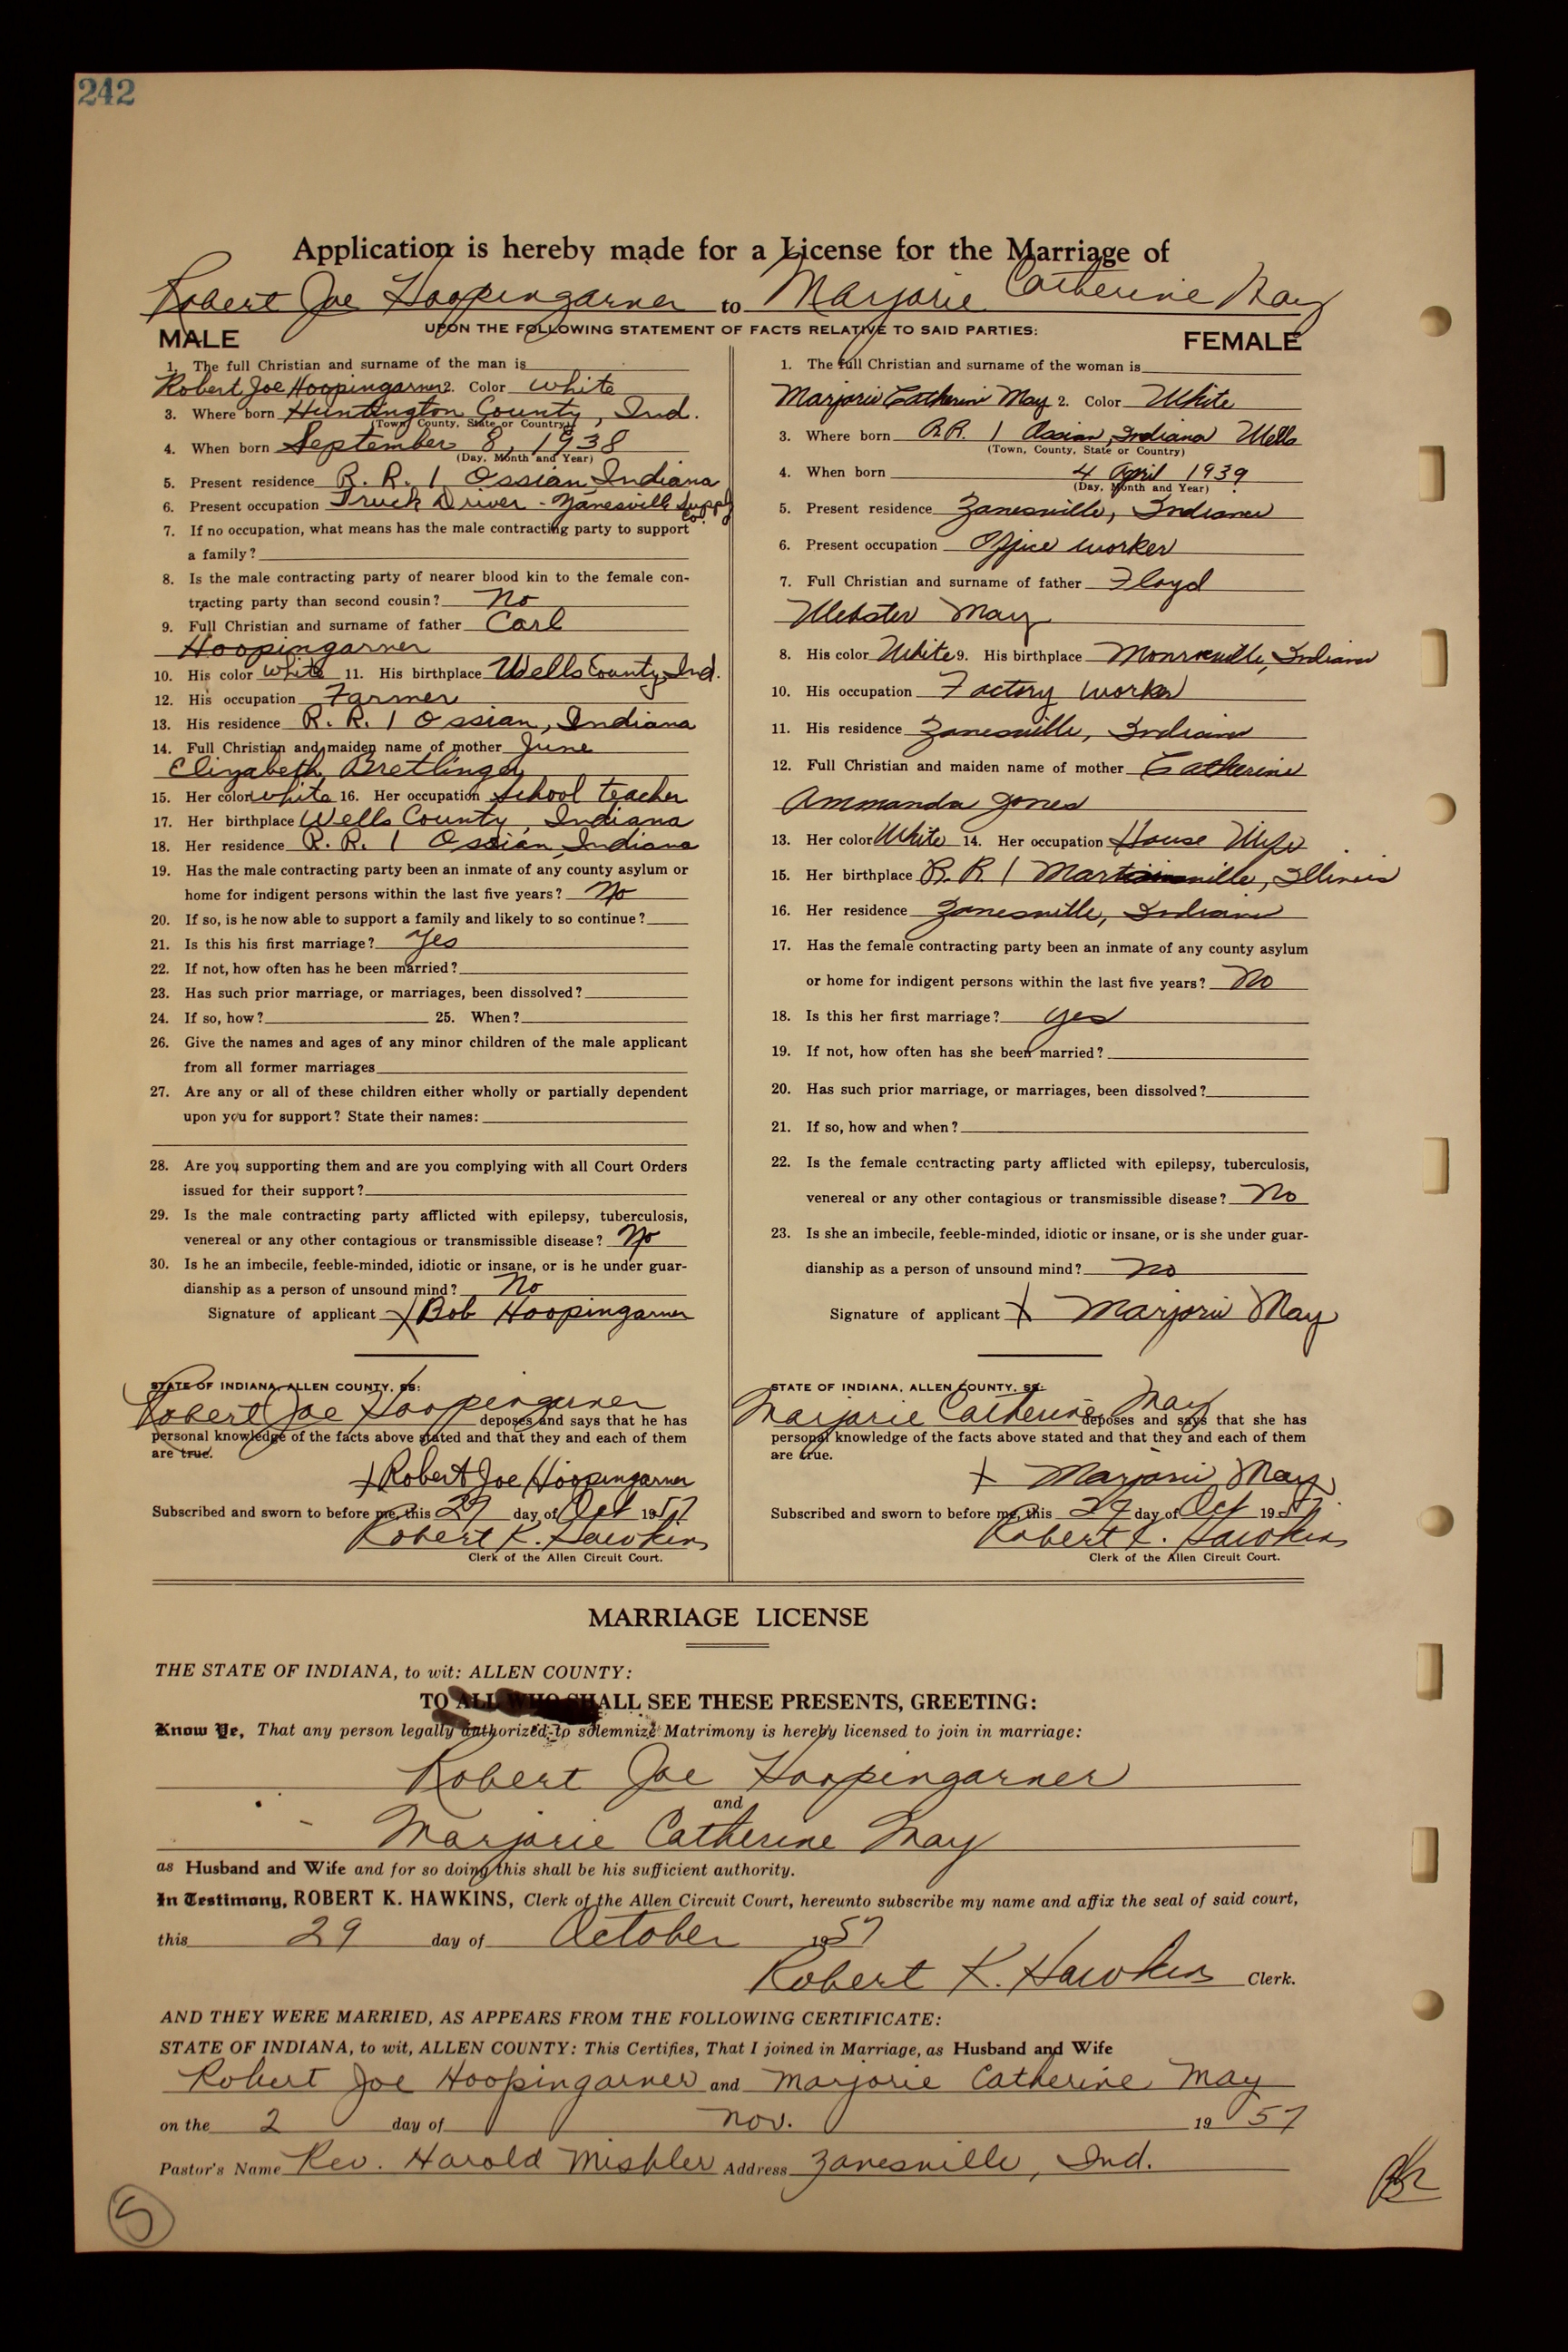 242
Application is hereby made for a License for the Marriage of
Robert Joe Hoopingarner to Marjorie Catherine May
UPON THE FOLLOWING STATEMENT OF FACTS RELATIVE TO SAID PARTIES:
MALE
1. The full Christian and surname of the man is
Robert Joe Hoopingarner 2. Color white
3. Where born Huntington County, Ind.
(Town, County, State or Country)
4. When born September 8, 1938
(Day, Month and Year)
5. Present residence R. R. 1 Ossian, Indiana
6. Present occupation Truck Driver - Zanesville Supply
Co.
7. If no occupation, what means has the male contracting party to support
a family?
8. Is the male contracting party of nearer blood kin to the female con-
tracting party than second cousin? No
9. Full Christian and surname of father Carl
Hoopingarner
10. His color white 11. His birthplace Wells County, Ind.
12. His occupation Farmer
13. His residence R. R. 1 Ossian, Indiana
14. Full Christian and maiden name of mother June
Elizabeth Bretlinger
15. Her color white 16. Her occupation School teacher
17. Her birthplace Wells County, Indiana
18. Her residence R. R. 1 Ossian, Indiana
19. Has the male contracting party been an inmate of any county asylum or
home for indigent persons within the last five years? No
20. If so, is he now able to support a family and likely to so continue?
21. Is this his first marriage? Yes
22. If not, how often has he been married?
23. Has such prior marriage, or marriages, been dissolved?
24. If so, how? 25. When?
26. Give the names and ages of any minor children of the male applicant
from all former marriages
27. Are any or all of these children either wholly or partially dependent
upon you for support? State their names:
28. Are you supporting them and are you complying with all Court Orders
issued for their support?
29. Is the male contracting party afflicted with epilepsy, tuberculosis,
venereal or any other contagious or transmissible disease? No
30. Is he an imbecile, feeble-minded, idiotic or insane, or is he under guar-
dianship as a person of unsound mind? No
Signature of applicant X Bob Hoopingarner
STATE OF INDIANA, ALLEN COUNTY, SS:
Robert Joe Hoopingarner deposes and says that he has
personal knowledge of the facts above stated and that they and each of them
are true.
X Robert Joe Hoopingarner
Subscribed and sworn to before me, this 29 day of Oct 1957
Robert K. Hawkins
Clerk of the Allen Circuit Court.
FEMALE
1. The full Christian and surname of the woman is
Marjorie Catherin May 2. Color White
3. Where born R.R. 1 Ossian, Indiana Wells
(Town, County, State or Country)
4. When born 4 April 1939
(Day, Month and Year)
5. Present residence Zanesville, Indiana
6. Present occupation Office worker
7. Full Christian and surname of father Floyd
Webster May
8. His color White 9. His birthplace Monroeville, Indiana
10. His occupation Factory worker
11. His residence Zanesville, Indiana
12. Full Christian and maiden name of mother Catherine
Ammanda Jones
13. Her color White 14. Her occupation House Wife
15. Her birthplace R. R. 1 Martinsville, Illinois
16. Her residence Zanesville, Indiana
17. Has the female contracting party been an inmate of any county asylum
or home for indigent persons within the last five years? No
18. Is this her first marriage? yes
19. If not, how often has she been married?
20. Has such prior marriage, or marriages, been dissolved?
21. If so, how and when?
22. Is the female contracting party afflicted with epilepsy, tuberculosis,
venereal or any other contagious or transmissible disease? No
23. Is she an imbecile, feeble-minded, idiotic or insane, or is she under guar-
dianship as a person of unsound mind? no
Signature of applicant X Marjorie May
STATE OF INDIANA, ALLEN COUNTY, SS:
Marjorie Catherine May deposes and says that she has
personal knowledge of the facts above stated and that they and each of them
are true.
X Marjorie May
Subscribed and sworn to before me, this 29 day of Oct 1957.
Robert K. Hawkins
Clerk of the Allen Circuit Court.
MARRIAGE LICENSE
THE STATE OF INDIANA, to wit: ALLEN COUNTY:
TO ALL WHO SHALL SEE THESE PRESENTS, GREETING:
Know Ye, That any person legally authorized to solemnize Matrimony is hereby licensed to join in marriage:
Robert Joe Hoopingarner
and
Marjorie Catherine May
as Husband and Wife and for so doing this shall be his sufficient authority.
In Testimony, ROBERT K. HAWKINS, Clerk of the Allen Circuit Court, hereunto subscribe my name and affix the seal of said court,
this 29 day of October 1957
Robert K. Hawkins Clerk.
AND THEY WERE MARRIED, AS APPEARS FROM THE FOLLOWING CERTIFICATE:
STATE OF INDIANA, to wit, ALLEN COUNTY: This Certifies, That I joined in Marriage, as Husband and Wife
Robert Joe Hoopingarner and Marjorie Catherine May
on the 2 day of Nov. 1957
Pastor's Name Rev. Harold Mishler Address Zanesville, Ind.
5